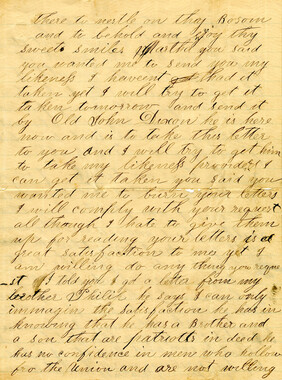 there to nestle on thy Bosom
and to behold and Joy thy
sweet smiles Martha you said
you wanted me to send you my
likeness I havent had it
taken yet I will try to get it
taken tomorrow and send it
by Old John Dixon he is here
now and is to take this letter
to you and I will try to get him
to take my likeness provided I
can get it taken you said you
wanted me to burn your letters
I will comply with your request
all though I hate to give them
up for reading your letters is a
great satisfaction to me yet I
am willing do any thing you reque
st I told you I got a letter from my
Philip he says I can only
immagin the satisfaction he has in
knowing that he has a Brother and
a son that are patriots in deed he
has no confidence in men who hollow
fro the Union and are not willing